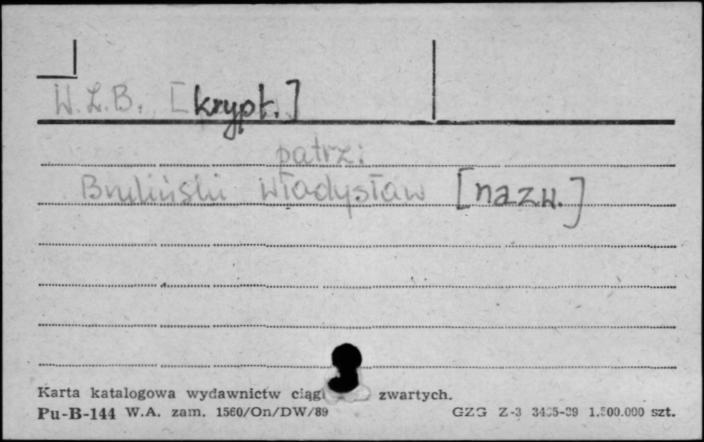 W.L.B. [krypt.]
patrz:
Bryliński Władysław [nazw.]
Karta katalogowa wydawnictw ciągł zwartych.
Pu-B-144 W.A. zam. 1560/On/DW/89 GZG Z-3 1.500.000 szt.